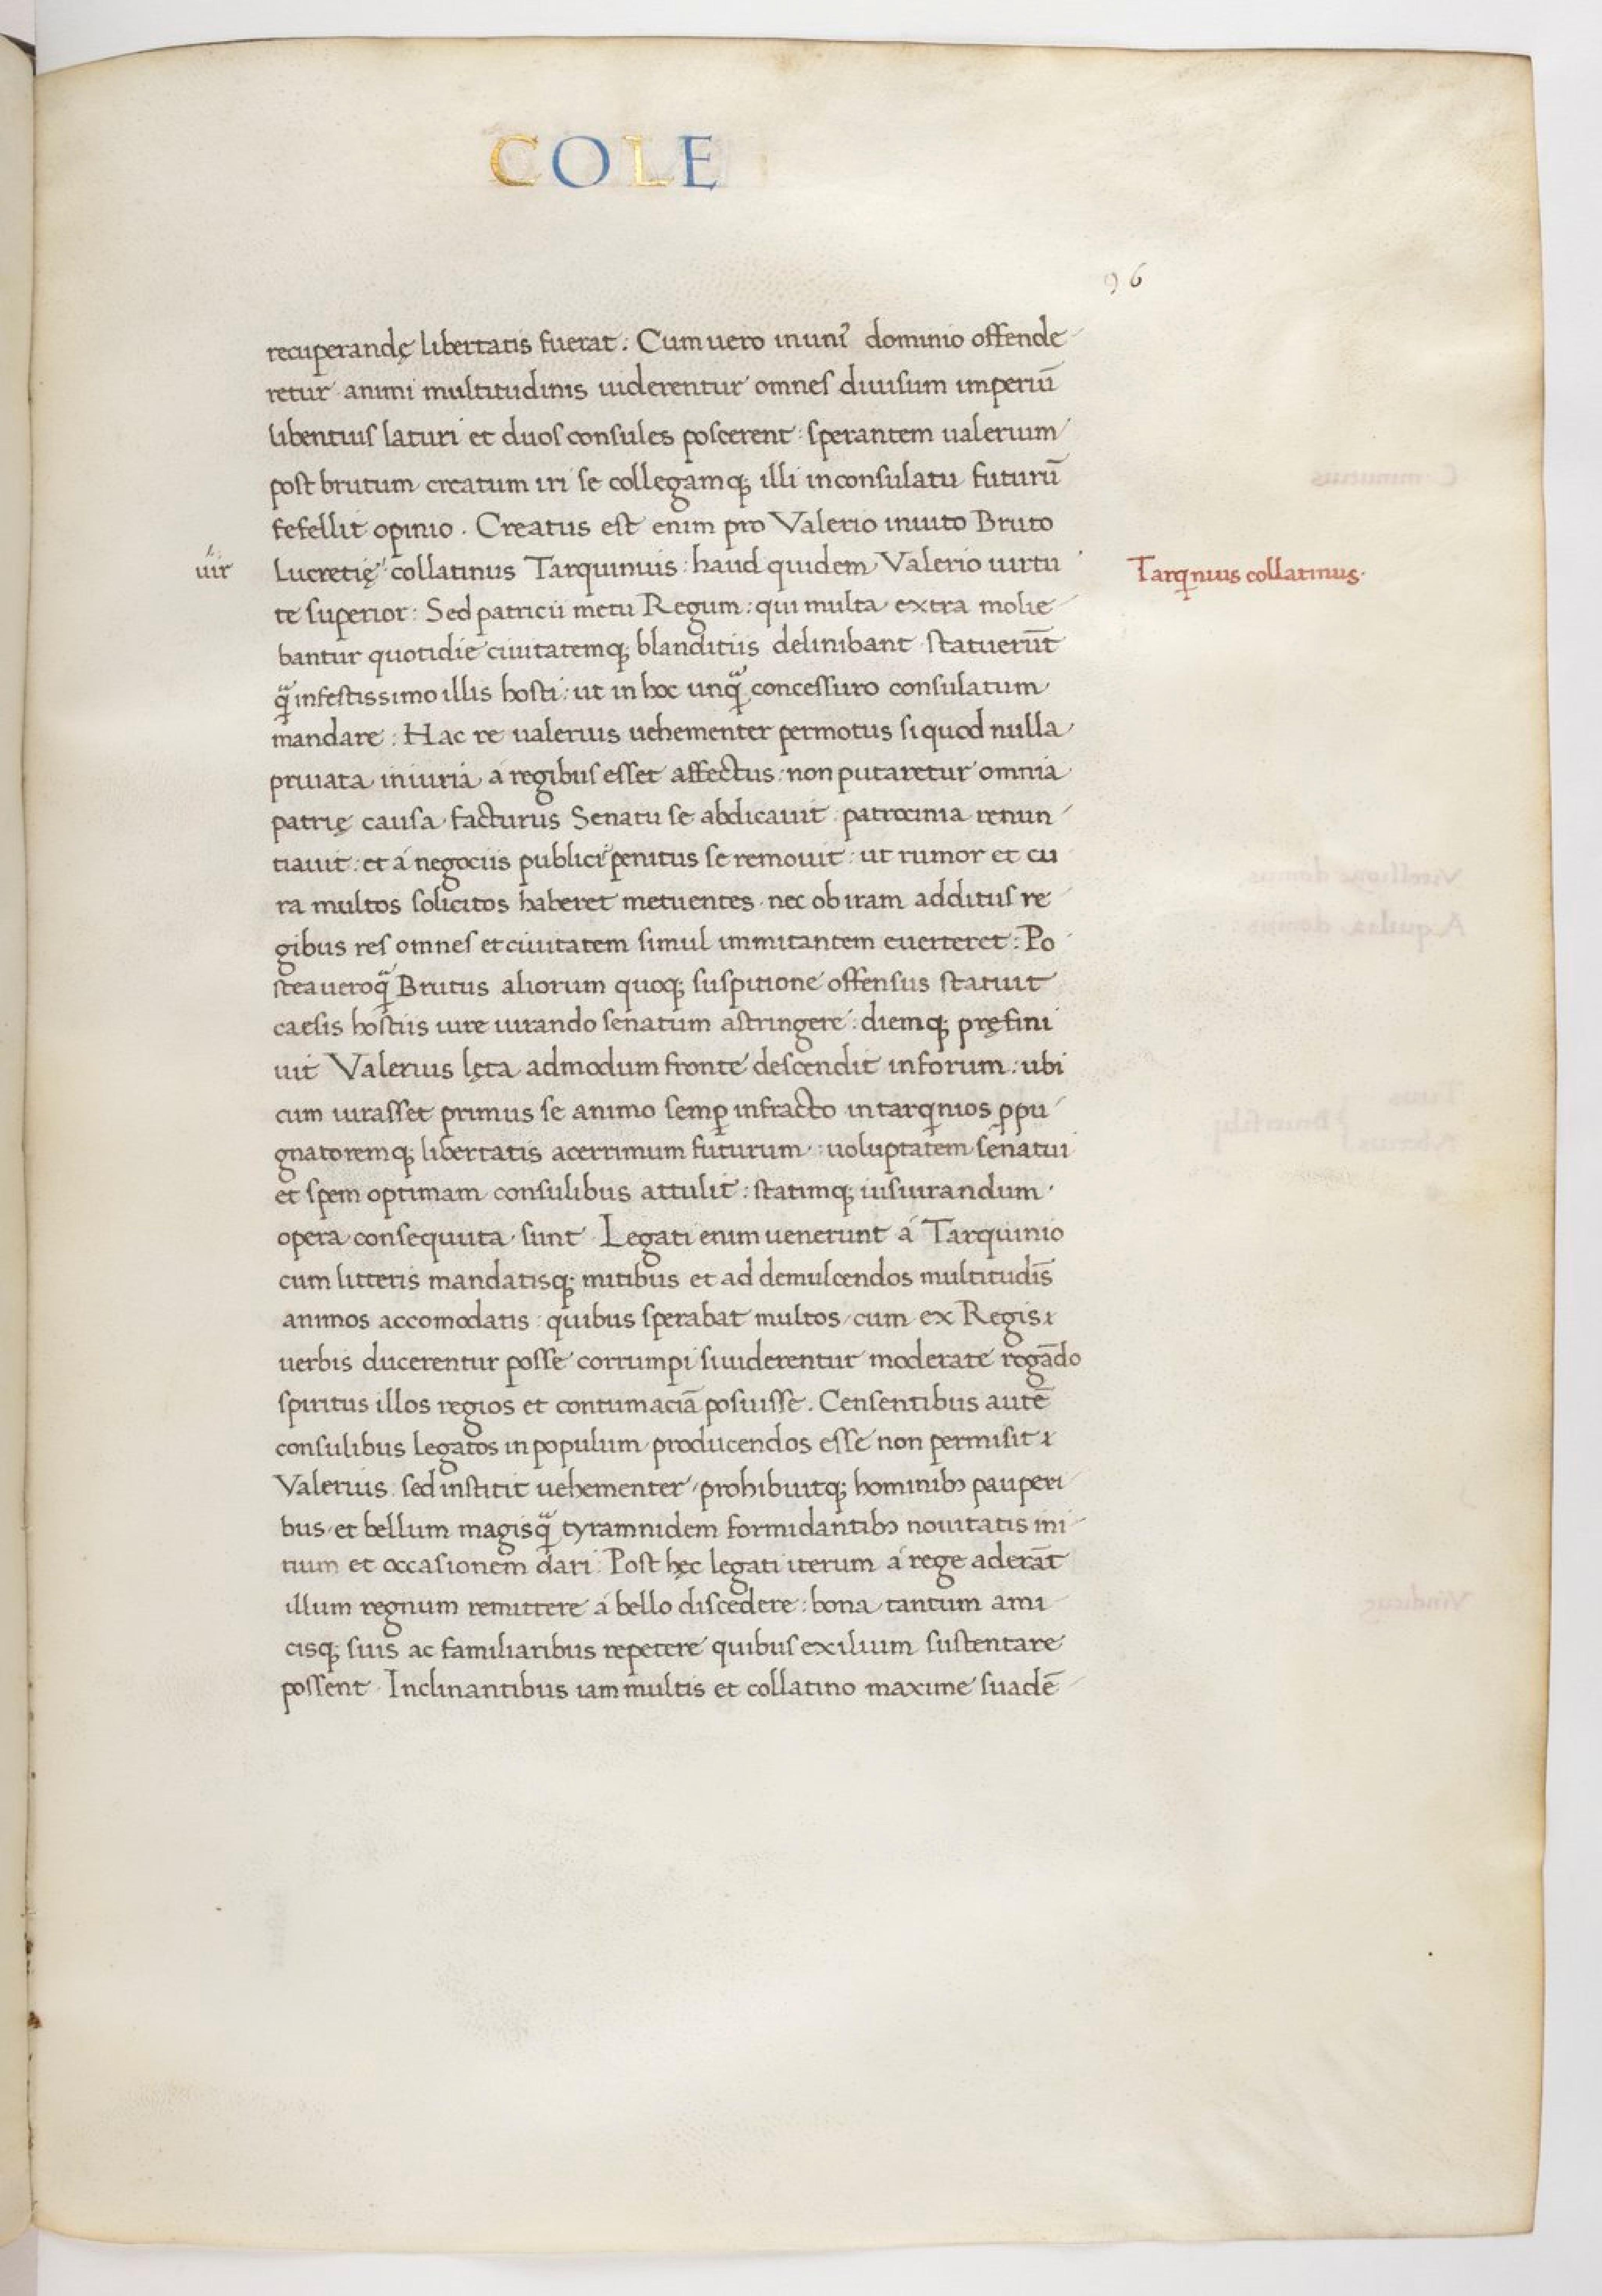 COLE
96
recuperandę libertatis fuerat. Cum uero in uni᷒ dominio offende
retur animi multitudinis uiderentur omnes diuisum imperiū
libentius laturi et duos consules poscerent: sperantem ualerium
post brutum creatum iri se collegamq; illi in consulatu futurū
fefellit opinio. Creatus est enim pro Valerio inuito Bruto
uir Lucretię collatinus Tarquinius: haud quidem Valerio uirtu
Tarqnius collatinus.
te superior: Sed patricii metu Regum: qui multa extra molie
bantur quotidie ciuitatemq; blanditiis delinibant statuerūt
qᷓ infestissimo illis hosti: ut in hoc unqᷓ concessuro consulatum
mandare: Hac re ualerius uehementer permotus si quod nulla
priuata iniuria a regibus esset affectus: non putaretur omnia
patrię causa facturus Senatu se abdicauit patrocinia renun
tiauit: et á negociis publicis penitus se remouit: ut rumor et cu
ra multos solicitos haberet metuentes nec ob iram additus re
gibus res omnes et ciuitatem simul immitantem euerteret: Po
stea uero qᷓ Brutus aliorum quoq; suspitione offensus statuit
caesis hostiis iure iurando senatum astringere: diemq; pręfini
uit Valerius lęta admodum fronte descendit in forum: ubi
cum iurasset primus se animo semꝑ infracto in tarqnios ꝓpu
gnatoremq; libertatis acerrimum futurum: uoluptatem senatui
et spem optimam consulibus attulit: statimq; iusiurandum
opera consequuta sunt Legati enim uenerunt á Tarquinio
cum litteris mandatisq; mitibus et ad demulcendos multitudis̄
animos accomodatis: quibus sperabat multos cum ex Regis
uerbis ducerentur posse corrumpi si uiderentur moderate rogādo
spiritus illos regios et contumaciā posuisse. Censentibus autē
consulibus legatos in populum producendos esse non permisit
Valerius sed institit uehementer prohibuitq; hominibꝰ pauperi
bus et bellum magisqᷓ tyramnidem formidantibꝰ nouitatis ini
tium et occasionem dari: Post hęc legati iterum á rege aderāt
illum regnum remittere á bello discedere: bona tantum ami
cisq; suis ac familiaribus repetere quibus exilium sustentare
possent Inclinantibus iam multis et collatino maxime suadē